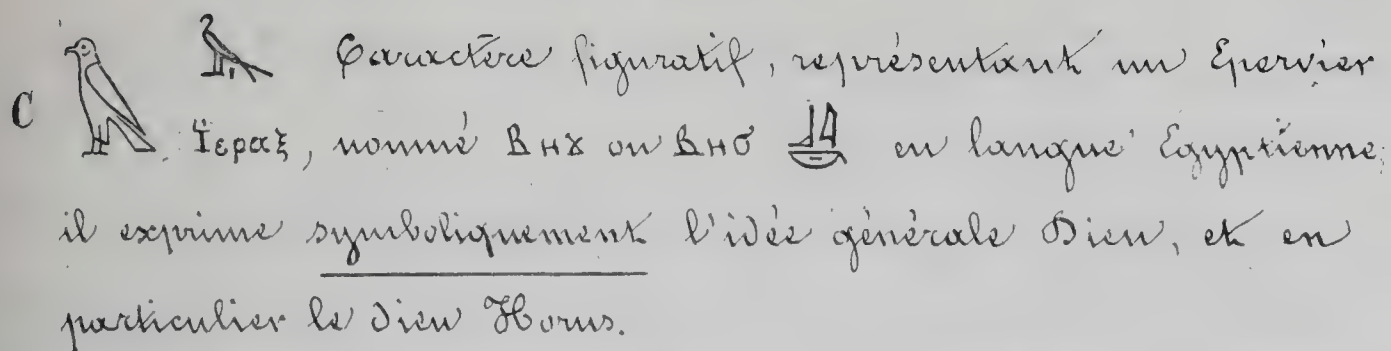 Caractère figuratif, représentant un Epervier
C Ϊεραξ, nommé ⲂⲎϪ ou ⲂⲎϬ en langue Egyptienne;
il exprime symboliquement l'idée générale Dieu, et en
particulier le Dieu Horus.